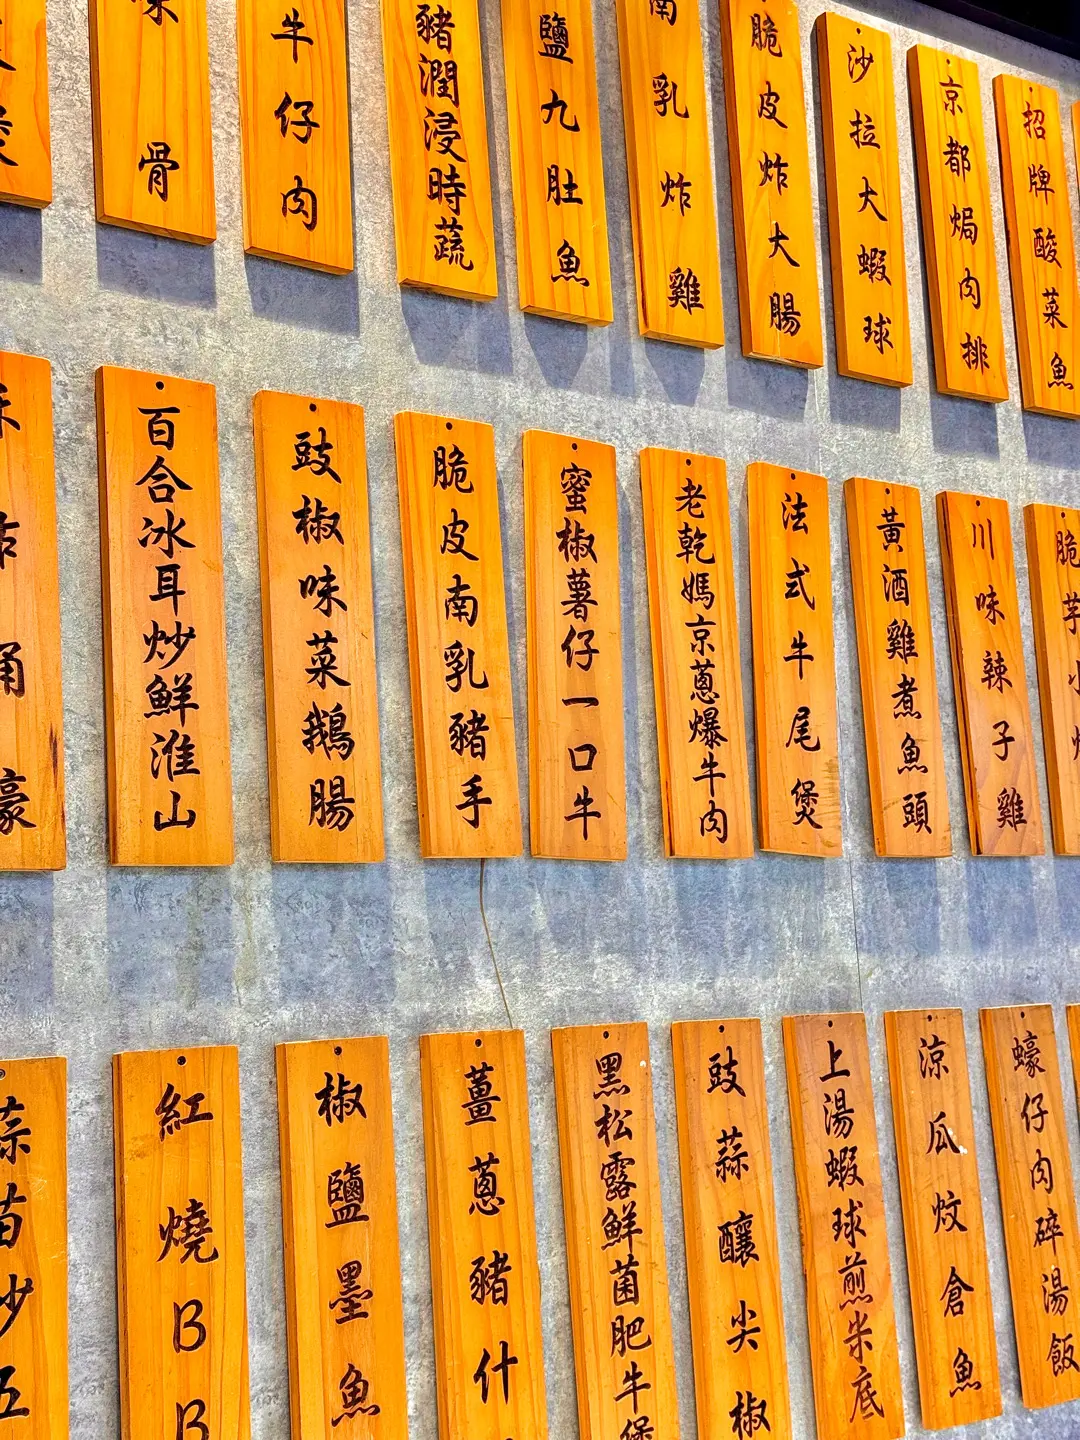 骨
牛仔肉
豬潤浸時蔬
鹽九肚魚
南乳炸雞
脆皮炸大腸
沙拉大蝦球
京都焗肉排
招牌酸菜魚
百合冰耳炒鮮淮山
豉椒味菜鵝腸
脆皮南乳豬手
蜜椒薯仔一口牛
老乾媽京蔥爆牛肉
法式牛尾煲
黃酒雞煮魚頭
川味辣子雞
脆芋小炒
蒜苗炒五
紅燒BB
椒鹽墨魚
薑蔥豬什
黑松露鮮菌肥牛煲
豉蒜釀尖椒
上湯蝦球煎米底
涼瓜炆倉魚
蠔仔肉碎湯飯